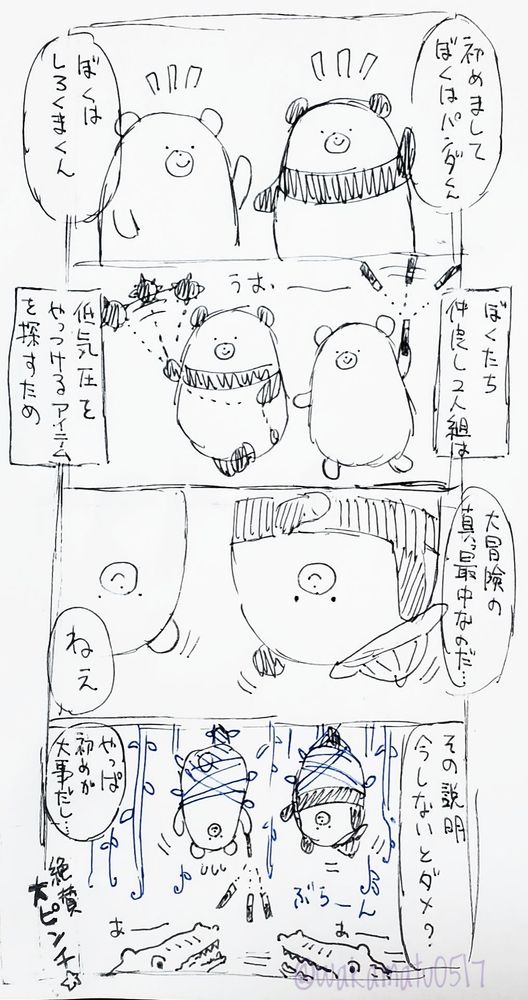 初めまして
ぼくはパンダくん
ぼくは
しろくまくん
ぼくたち
仲良し2人組は
うおぉー
低気圧を
やっつけるアイテム
を探すため
大冒険の
真っ最中なのだ…
ねえ
その説明
今しないとダメ?
やっぱ
初めが
大事だし…
ぶらーん
あー
あー
絶賛
大ピンチ☆
@wakamatu0517